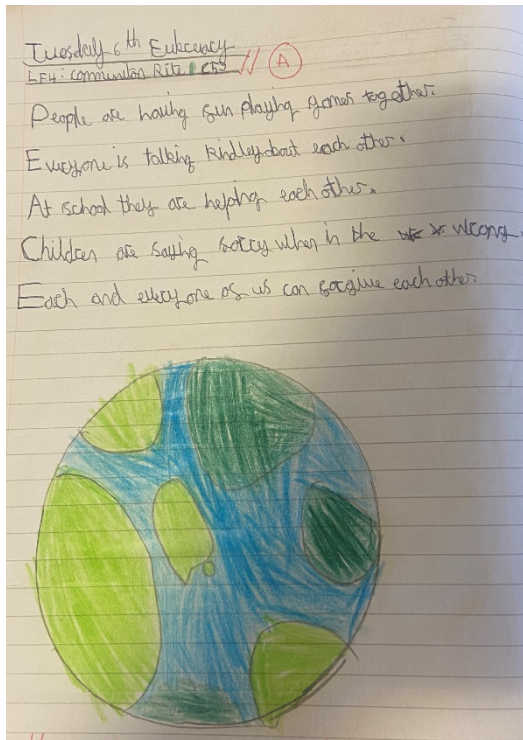 Tuesday 6th
LF4: Communion Rite C53 A
People are having fun playing games together.
Everyone is talking kindley about each other.
At school they are helping each other.
Children are saying sorry when in the wrong.
Each and everyone of us can forgive each other.